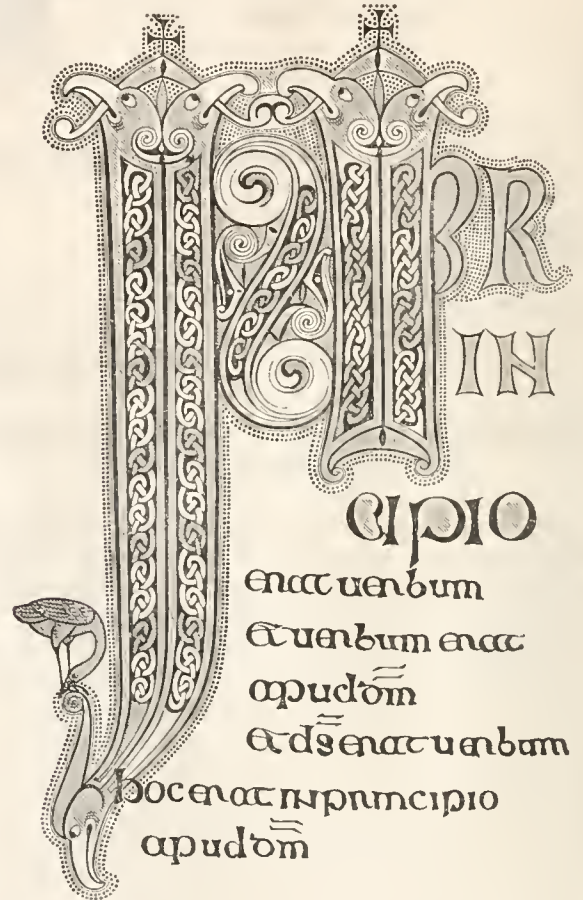 INPR
IN
CIPIO
erat uerbum
et uerbum erat
apud dm̄
et ds̄ erat uerbum
hoc erat in principio
apud dm̄